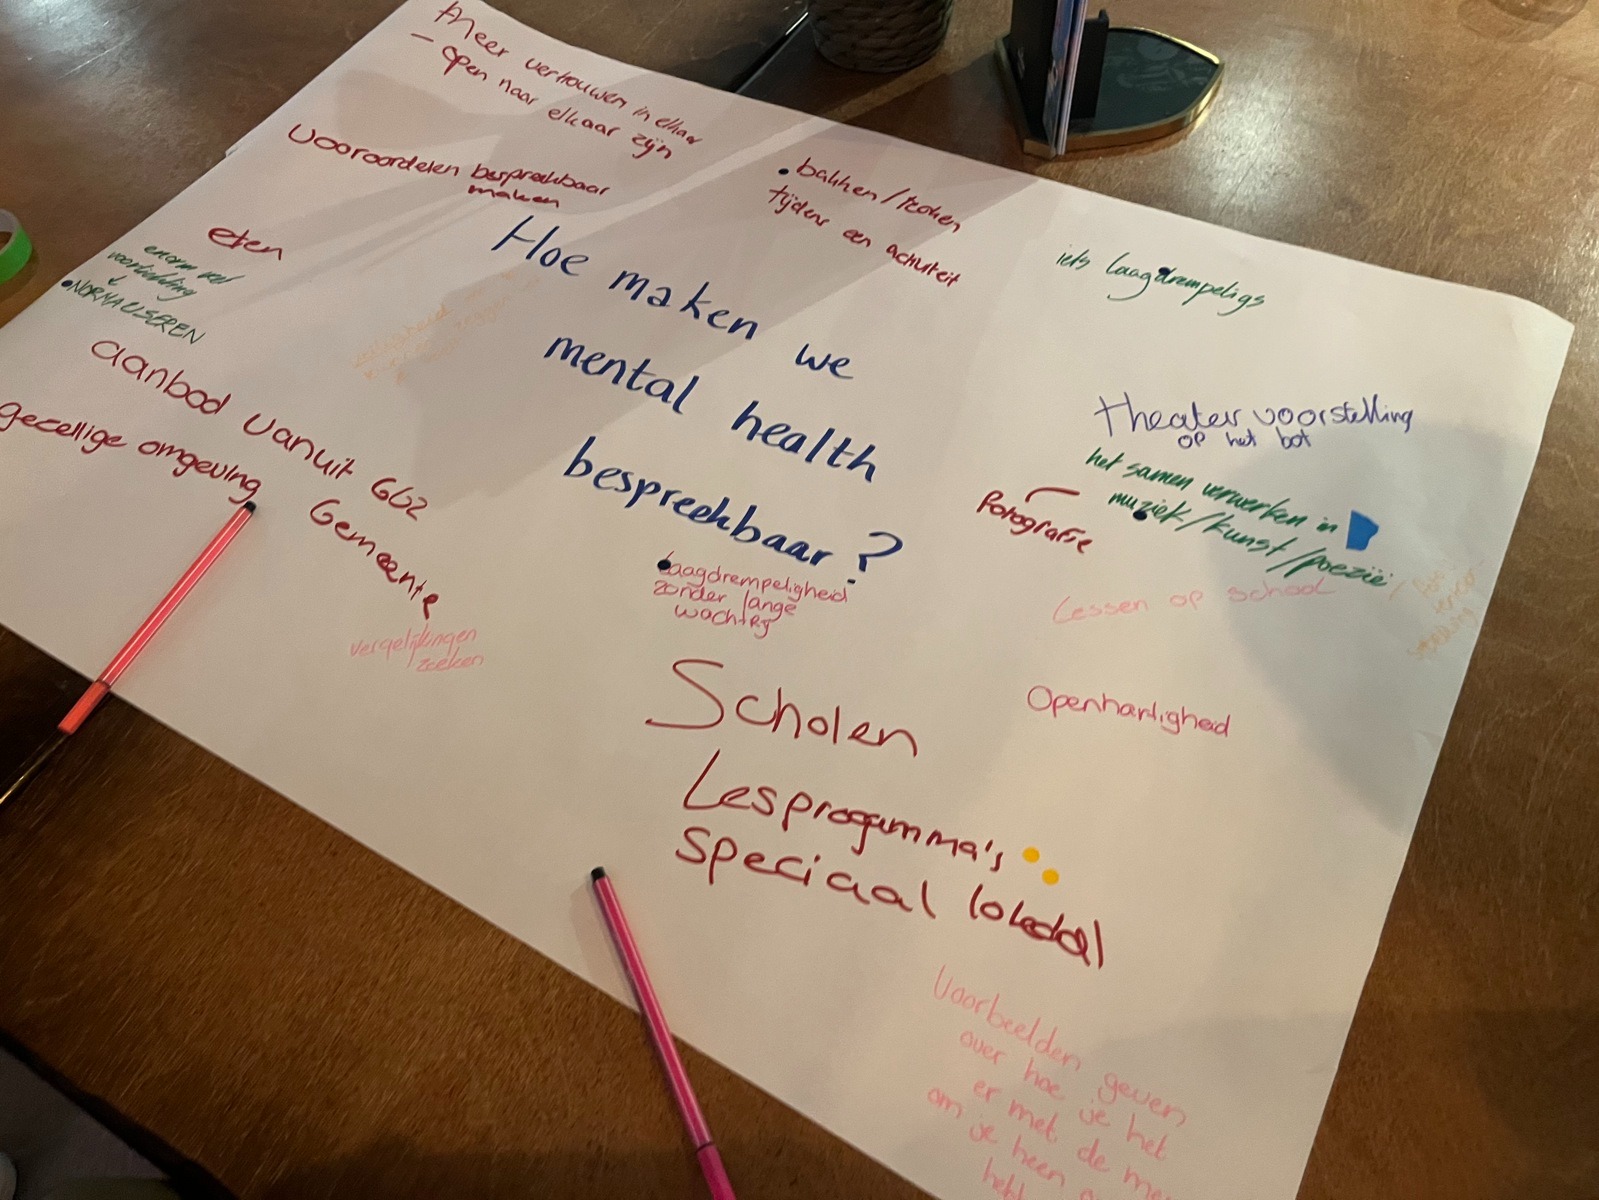 Meer vertrouwen in elkaar
- open naar elkaar zijn
vooroordelen bespreekbaar
maken
• bakken/koken
tijdens een activiteit
iets laagdrempeligs
eten
enorm veel
voorlichting
↓
• NORMALISEREN
Hoe maken we
mental health
bespreekbaar?
aanbod vanuit GGZ
Gemeente
gezellige omgeving
theater voorstelling
op het bot
het samen verwerken in
muziek/kunst/poezië
Fotografie
Laagdrempeligheid
zonder lange
wachttij
Lessen op school
vergelijkingen
zoeken
Openhartigheid
Scholen
Lesprogamma's
speciaal lokaal
Voorbeelden geven
over hoe je het
er met de me
om je heen
hebt